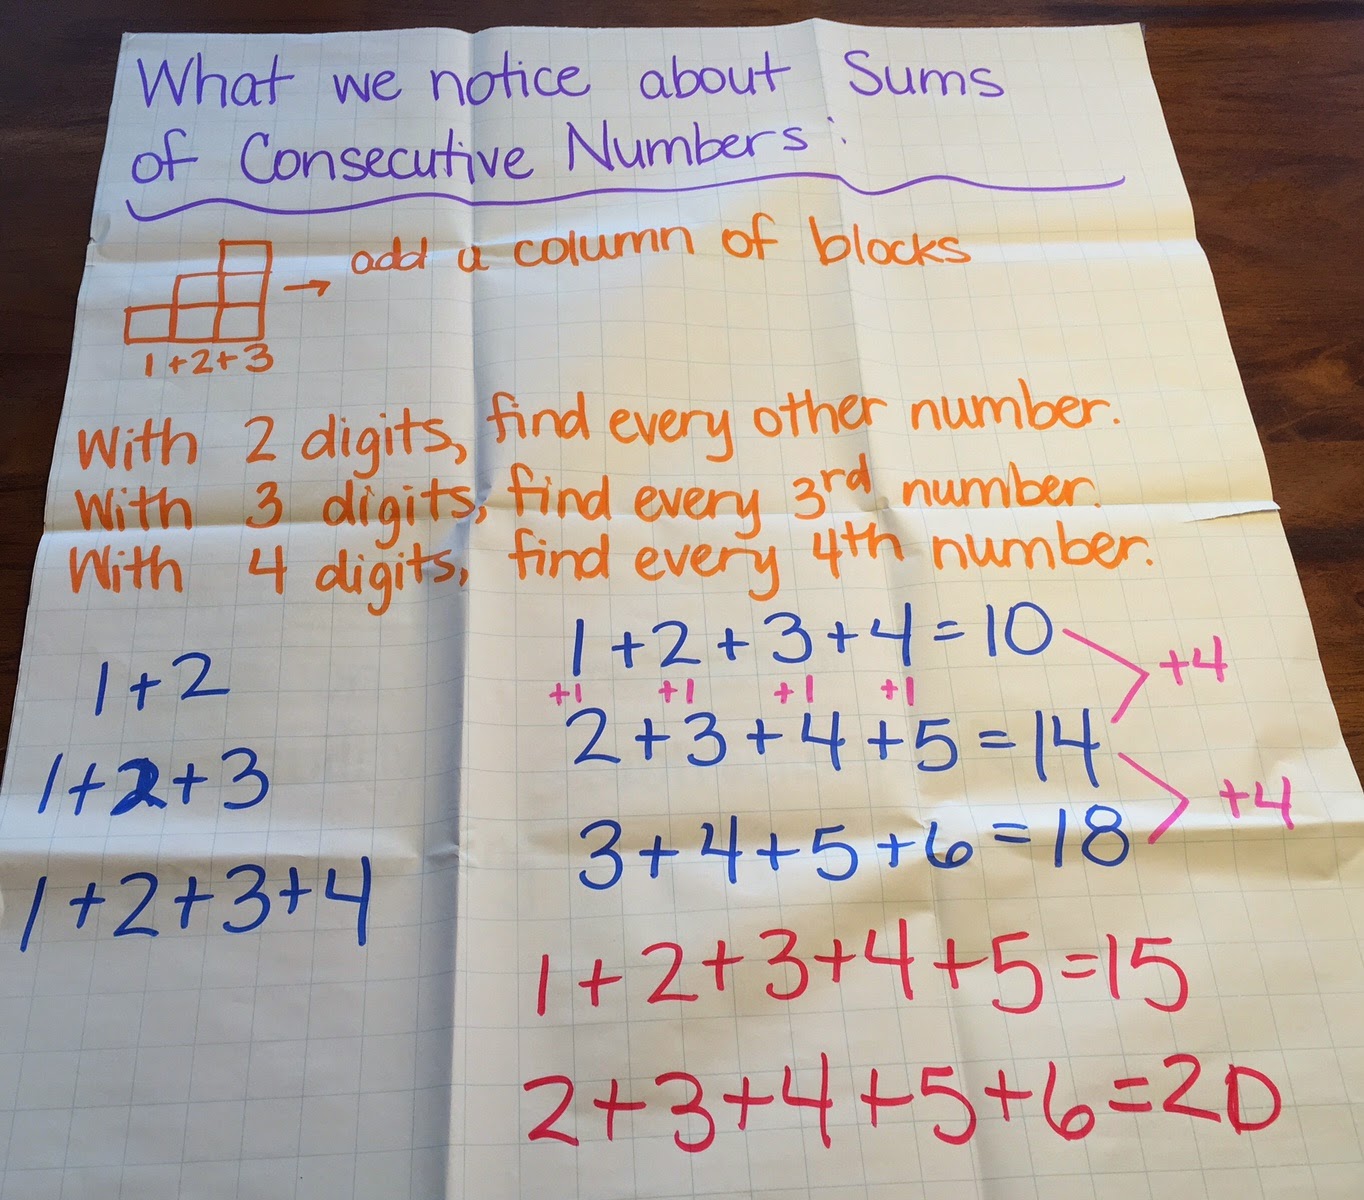 What we notice about Sums
of Consecutive Numbers:
→ add a column of blocks
1+2+3
With 2 digits, find every other number.
With 3 digits, find every 3rd number.
With 4 digits, find every 4th number.
1+2
1+2+3
1+2+3+4
1+2+3+4=10
+4
+1 +1 +1 +1
2+3+4+5=14
+4
3+4+5+6=18
1+2+3+4+5=15
2+3+4+5+6=20